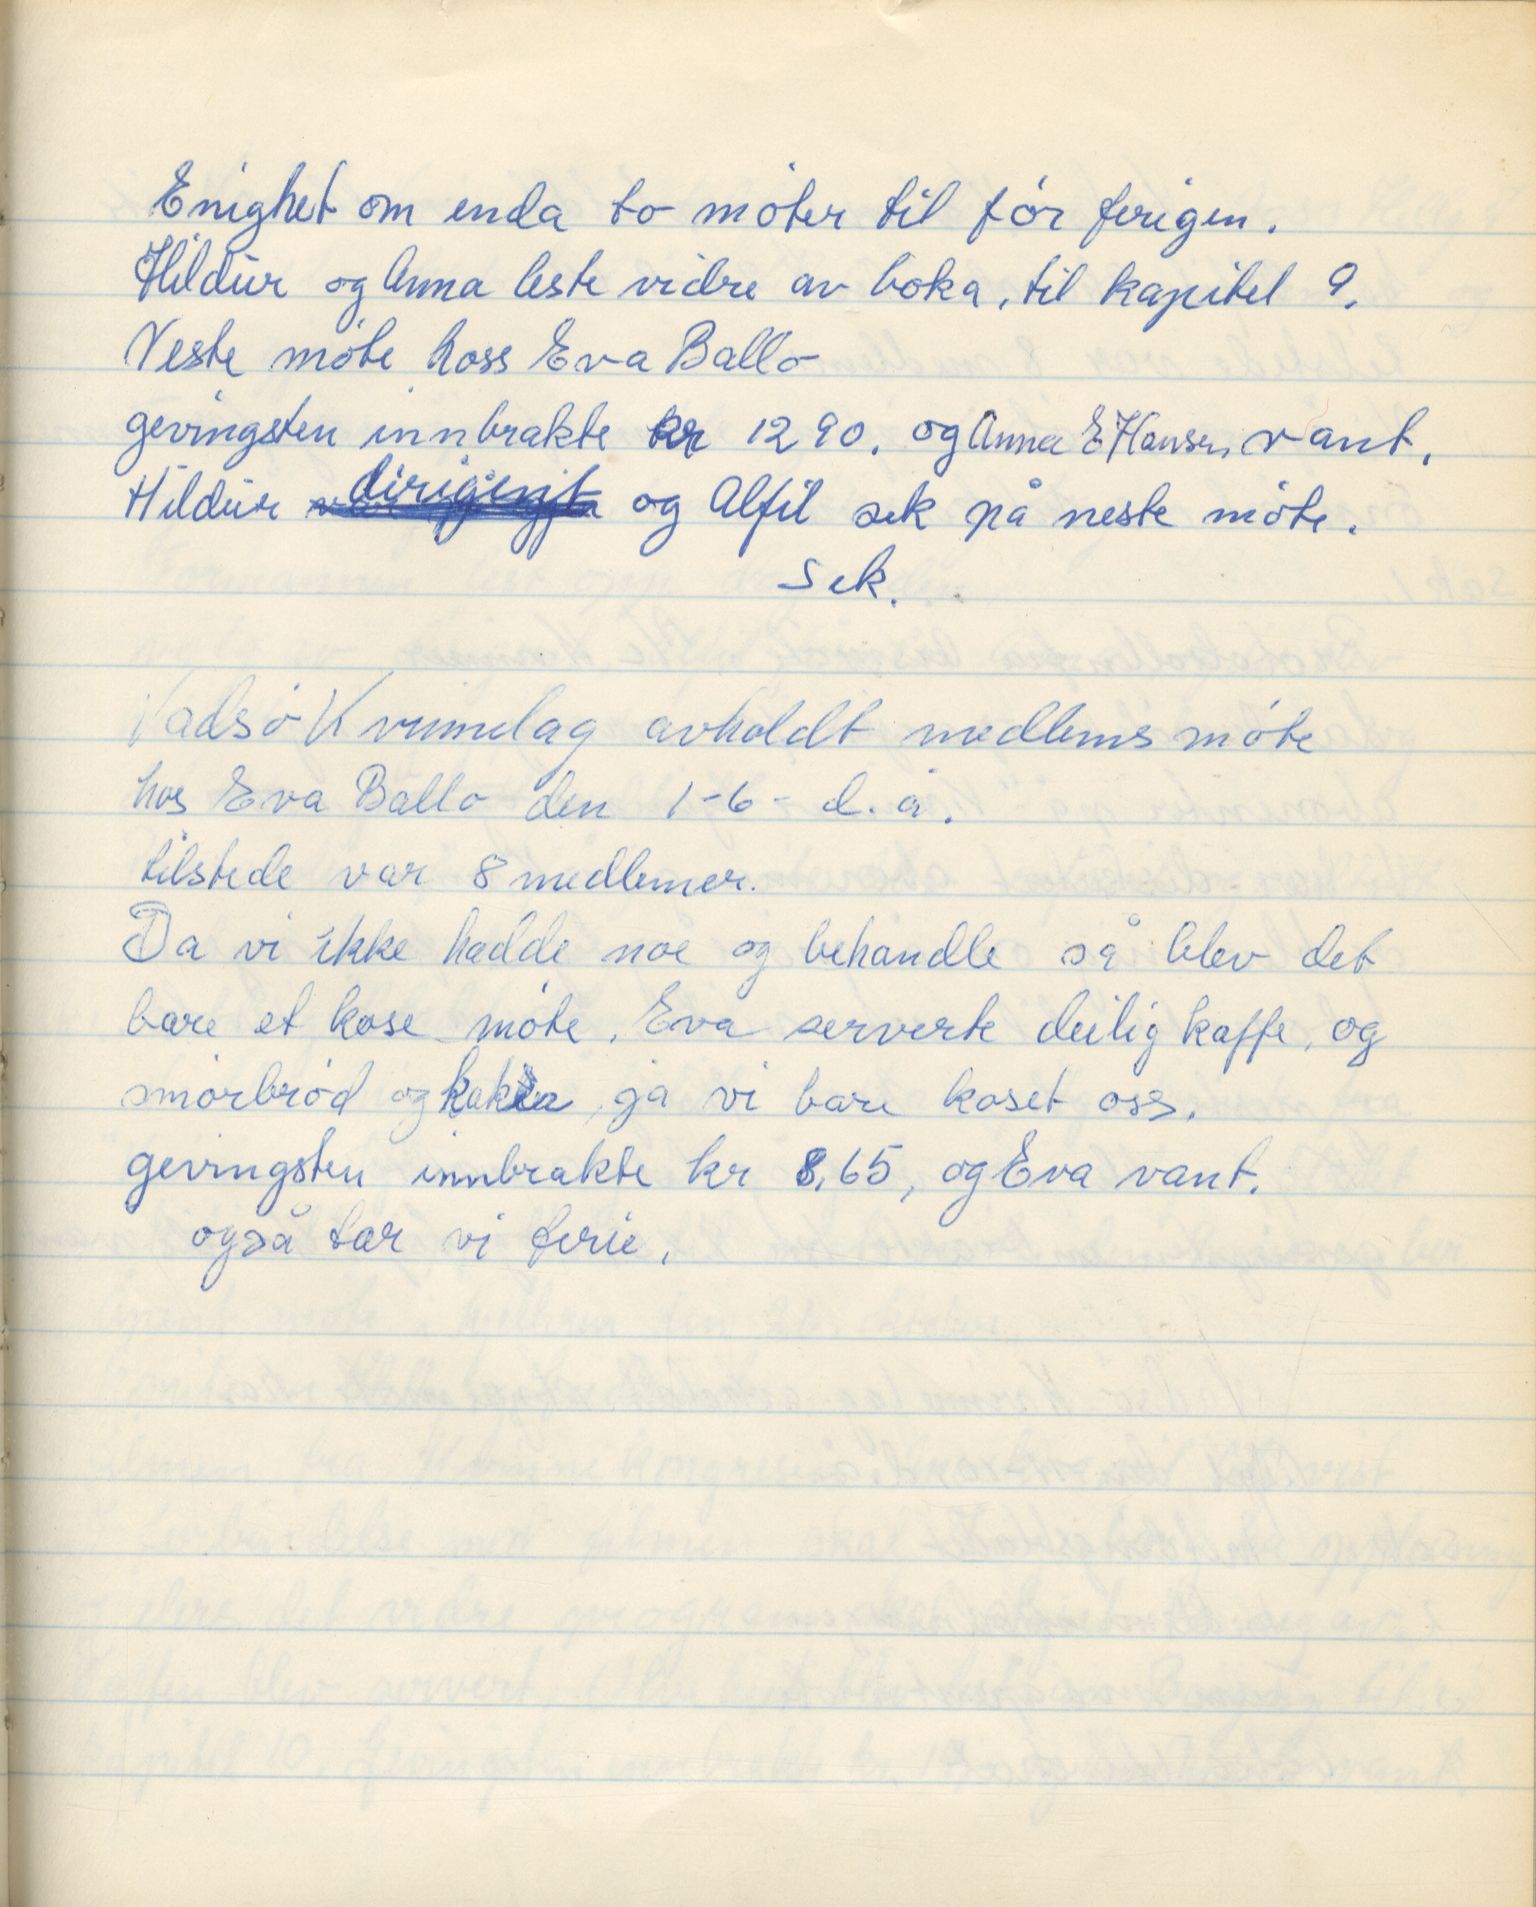 Enighet om enda to møter til før ferigen.
Hildur og Anna leste vidre av boka, til kapitel 9.
Neste møte hoss Eva Ballo
gevingsten innbrakte kr 1290. og Anna E Hansen vant.
Hildur dirigent og Alfil sek på neste møte.
Sek.
Vadsø Kvinnelag avholdt medlemsmøte
hos Eva Ballo den 1-6- d. å.
tilstede var 8 medlemer.
Da vi ikke hadde noe og behandle så blev det
bare et kose møte. Eva serverte deilig kaffe, og
smørbrød og kaker, ja vi bare koset oss.
gevingsten innbrakte kr 8,65, og Eva vant.
også tar vi ferie.